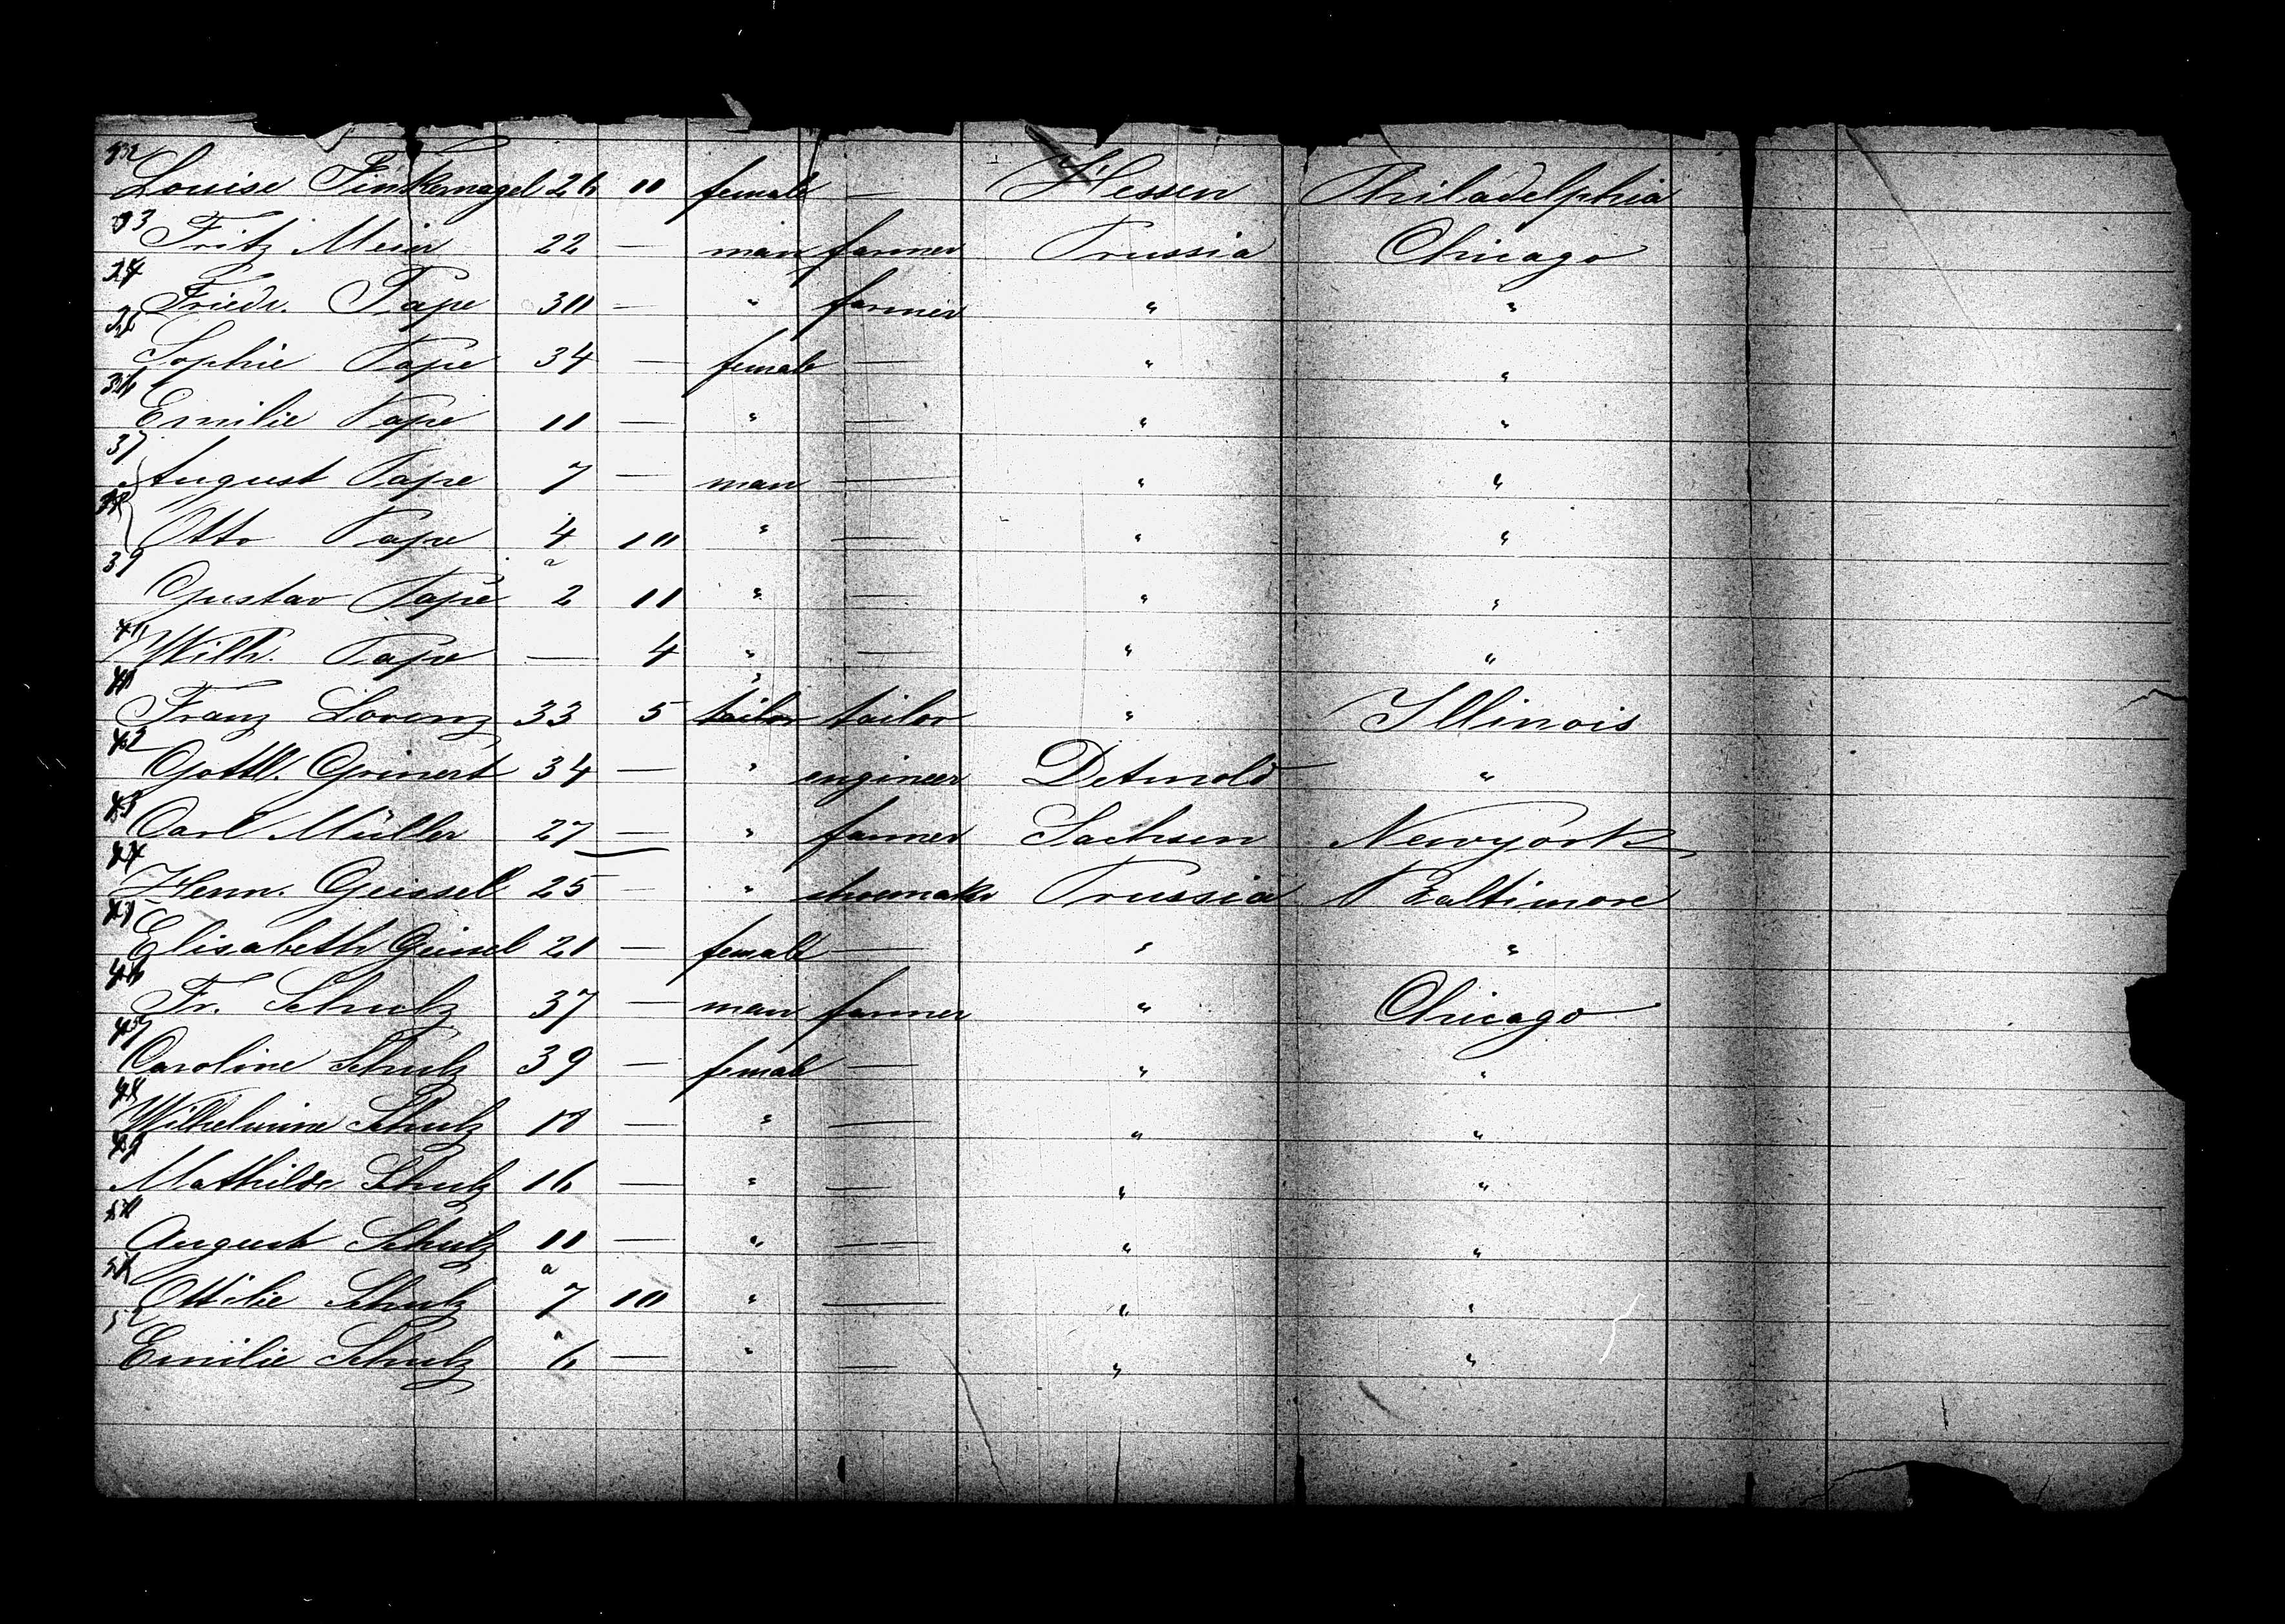 32 Louise Finkernagel 26 11 female — Hessen Philadelphia
33 Fritz Meier 22 — man farmer Prussia Chicago
34 Friedr. Pape 30 — " farmer " "
35 Sophie Pape 34 — female — " "
36 Emilie Pape 11 — " — " "
37 August Pape 7 — man — " "
38 Otto Pape 4 10 " — " "
39 Gustav Pape 2 11 " — " "
40 Wilh. Pape — 4 " — " "
41 Franz Lorenz 33 5 tailor tailor " Illinois
42 Gottl. Grinert 34 — " engineer Detmold "
43 Carl Müller 27 — " farmer Sachsen Newyork
44 Henn. Geissel 25 — " shoemaker Prussia Baltimore
45 Elisabeth Geissel 21 — female — " "
46 Fr. Schulz 37 — man farmer " Chicago
47 Caroline Schulz 39 — female — " "
48 Wilhelmine Schulz 18 — " — " "
49 Mathilde Schulz 16 — " — " "
50 August Schulz 11 — " — " "
51 Ottilie Schulz 7 10 " — " "
52 Emilie Schulz 6 — " — " "